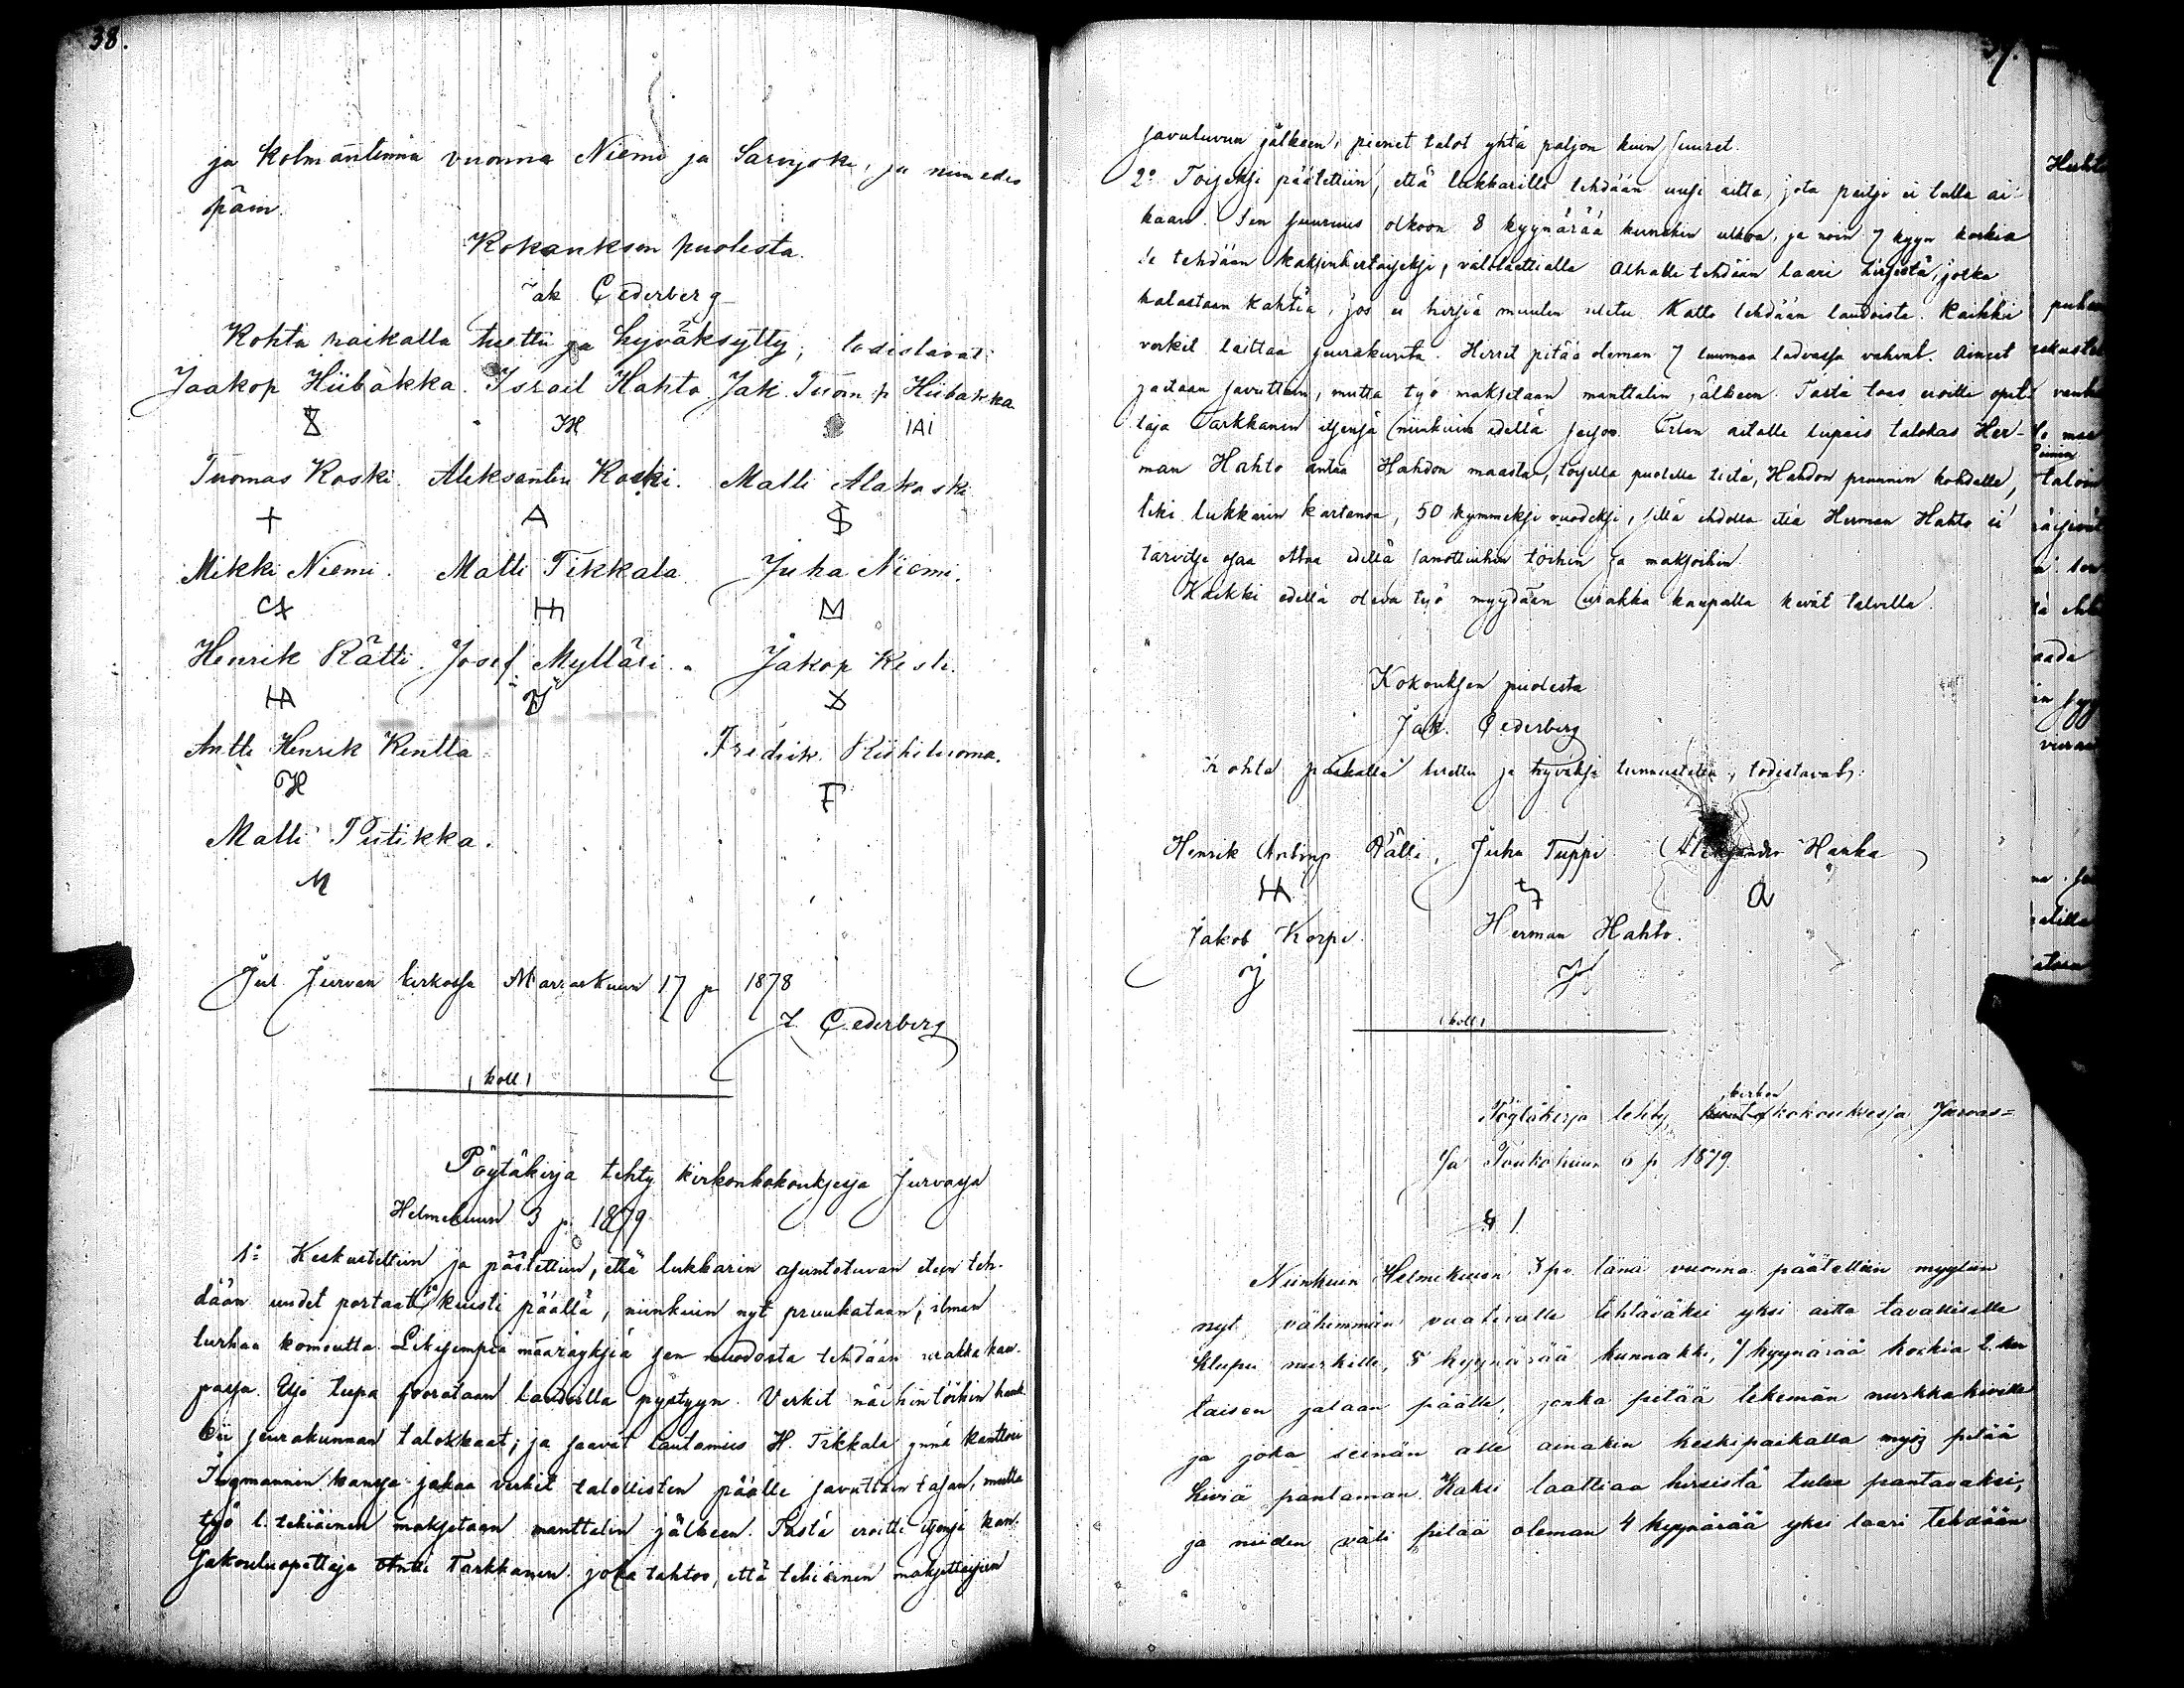 38.
ja kolmantenna vuonna Niemi ja Sarvijoki, ja niin edes
päin.
Kokouksen puolesta.
Jak Cederberg
Kohta paikalla luettu ja hyväksytty, todistavat:
Jaakop Hiibakka. Israel Hahto Jak. Tuom p Hiibakka
IH IAI
Tuomas Koski. Aleksanteri Koski. Matti Alakoski
+ A
Mikki Niemi. Matti Tikkala Juha Niemi.
M
Henrik Rätti. Josef Mylläri. Jakop Kesti.
HA X
Antti Henrik Rentta Fredrik Riihiluoma.
H F
Matti Piitikka.
M
Jul. Jurvan kirkossa Marraskuun 17 p 1878
J. Cederberg
(koll)
Pöytäkirja tehty kirkonkokouksessa Jurvassa
Helmikuun 3 p. 1879
1:o Keskusteltiin ja päätettiin, että lukkarin asuntotuvan eteen teh-
dään uudet portaat ja kuisti päällä, niinkuin nyt pruukataan, ilman
turhaa komeutta. Likisempiä määräyksiä sen muodosta tehdään urakka kau-
passa. Itse tupa foorataan laudoilla pystyyn. Verkit näihin töihin hank-
kii seurakunnan talokkaat; ja saavat lautamies H. Tikkala ynnä kanttori
Ingmannin kanssa jakaa verkit talollisten päälle savuttain tasan, mutta
työ l. tekiäinen maksetaan manttalin jälkeen. Tästä eroitti itsensä kan-
sakouluopettaja Antti Tarkkanen joka tahtoo, että tekiäinen maksettaisiin
savuluvun jälkeen, pienet talot yhtä paljon kuin suuret.
2:o Toiseksi päätettiin, että lukkarille tehdään uusi aitta, jota paitsi ei tulla ai-
kaan. Sen suuruus olkoon 8 kyynärää kunnekin ulkoa, ja noin 7 kyyn korkia
se tehdään kaksinkertaiseksi, välilaattialla Alhalle tehdään laari hirsistä, jotka
halastaan kahtia, jos ei hirsiä muuten riitä. Katto tehdään laudoista. Kaikki
verkit laittaa seurakunta. Hirret pitää oleman 7 tuumaa ladvassa vahvat. Aineet
jaetaan savuttain, mutta työ maksetaan manttalin jälkeen. Tästä taas eroitti opet-
taja Tarkkanen itsensä niinkuin edellä seisoo. Tilan aitalle lupais talokas Her-
man Hahto antaa Hahdon maasta, toisella puolella tietä, Hahdon pruunin kohdalla,
liki lukkarin kartanoa, 50 kymmeksi vuodeksi, sillä ehdolla että Herman Hahto ei
tarvitse osaa ottaa edellä sanottuihin töihin ja maksoihin.
Kaikki edellä oleva työ myydään urakka kaupalla kevät talvella.
Kokouksen puolesta
Jak. Cederberg
Kohta paikalla luettu ja hyväksi tunnustettu, todistavat:
Henrik Rätti, Juha Tuppi Aleksander Hanka
HA
Jakob Korpi. Herman Hahto.
(koll)
kirkon
Pöytäkirja tehty kunta kokouksessa Jurvas=
sa Toukokuun 6 p 1879.
§ 1
Niinkuin Helmikuun 3 p:o tänä vuonna päätettiin myytiin
nyt vähimmän vaativalle tehtäväksi yksi aitta tavallisella
klupu nurkilla, 8 kyynärää kunnakki, 7 kyynärää korkia 2 ker
taisen jalaan päälle, jonka pitää tekemän nurkkakivillä
ja joka seinän alle ainakin keskipaikalla myös pitää
kiviä pantaman. Kaksi laattiaa hirsistä tulee pantavaksi,
ja niiden väli pitää oleman 4 kyynärää yksi laari tehdään